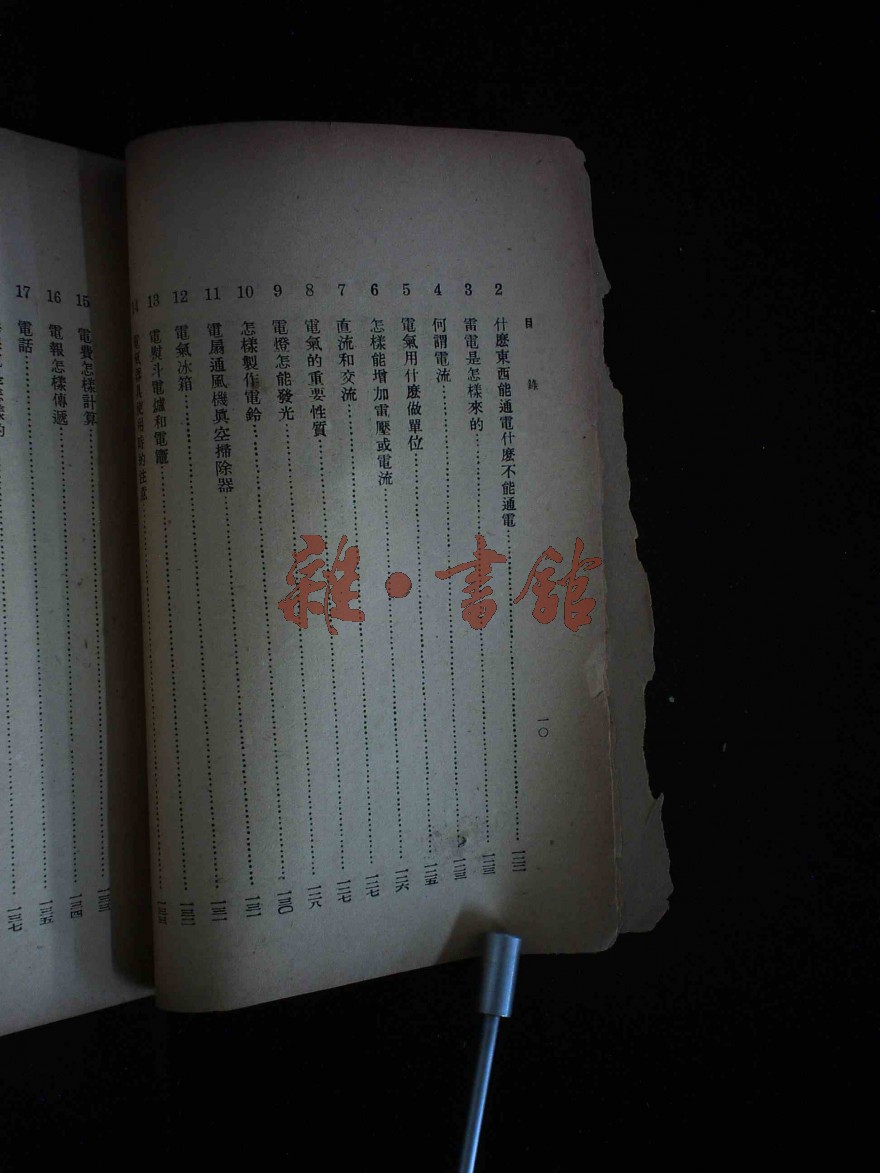 目錄 一〇
2 什麼東西能通電什麼不能通電……一二二
3 雷電是怎樣來的……一二三
4 何謂電流……一二三
5 電氣用什麼做單位……一二五
6 怎樣能增加電壓或電流……一二六
7 直流和交流……一二七
8 電氣的重要性質……一二七
9 電燈怎能發光……一二八
10 怎樣製作電鈴……一三〇
11 電扇通風機真空掃除器……一三一
12 電氣冰箱……一三一
13 電熨斗電爐和電竈……一三二
14 電氣器具使用時的注意……一三三
15 電費怎樣計算……一三三
16 電報怎樣傳遞……一三四
17 電話……一三五
一三七
雜·書館